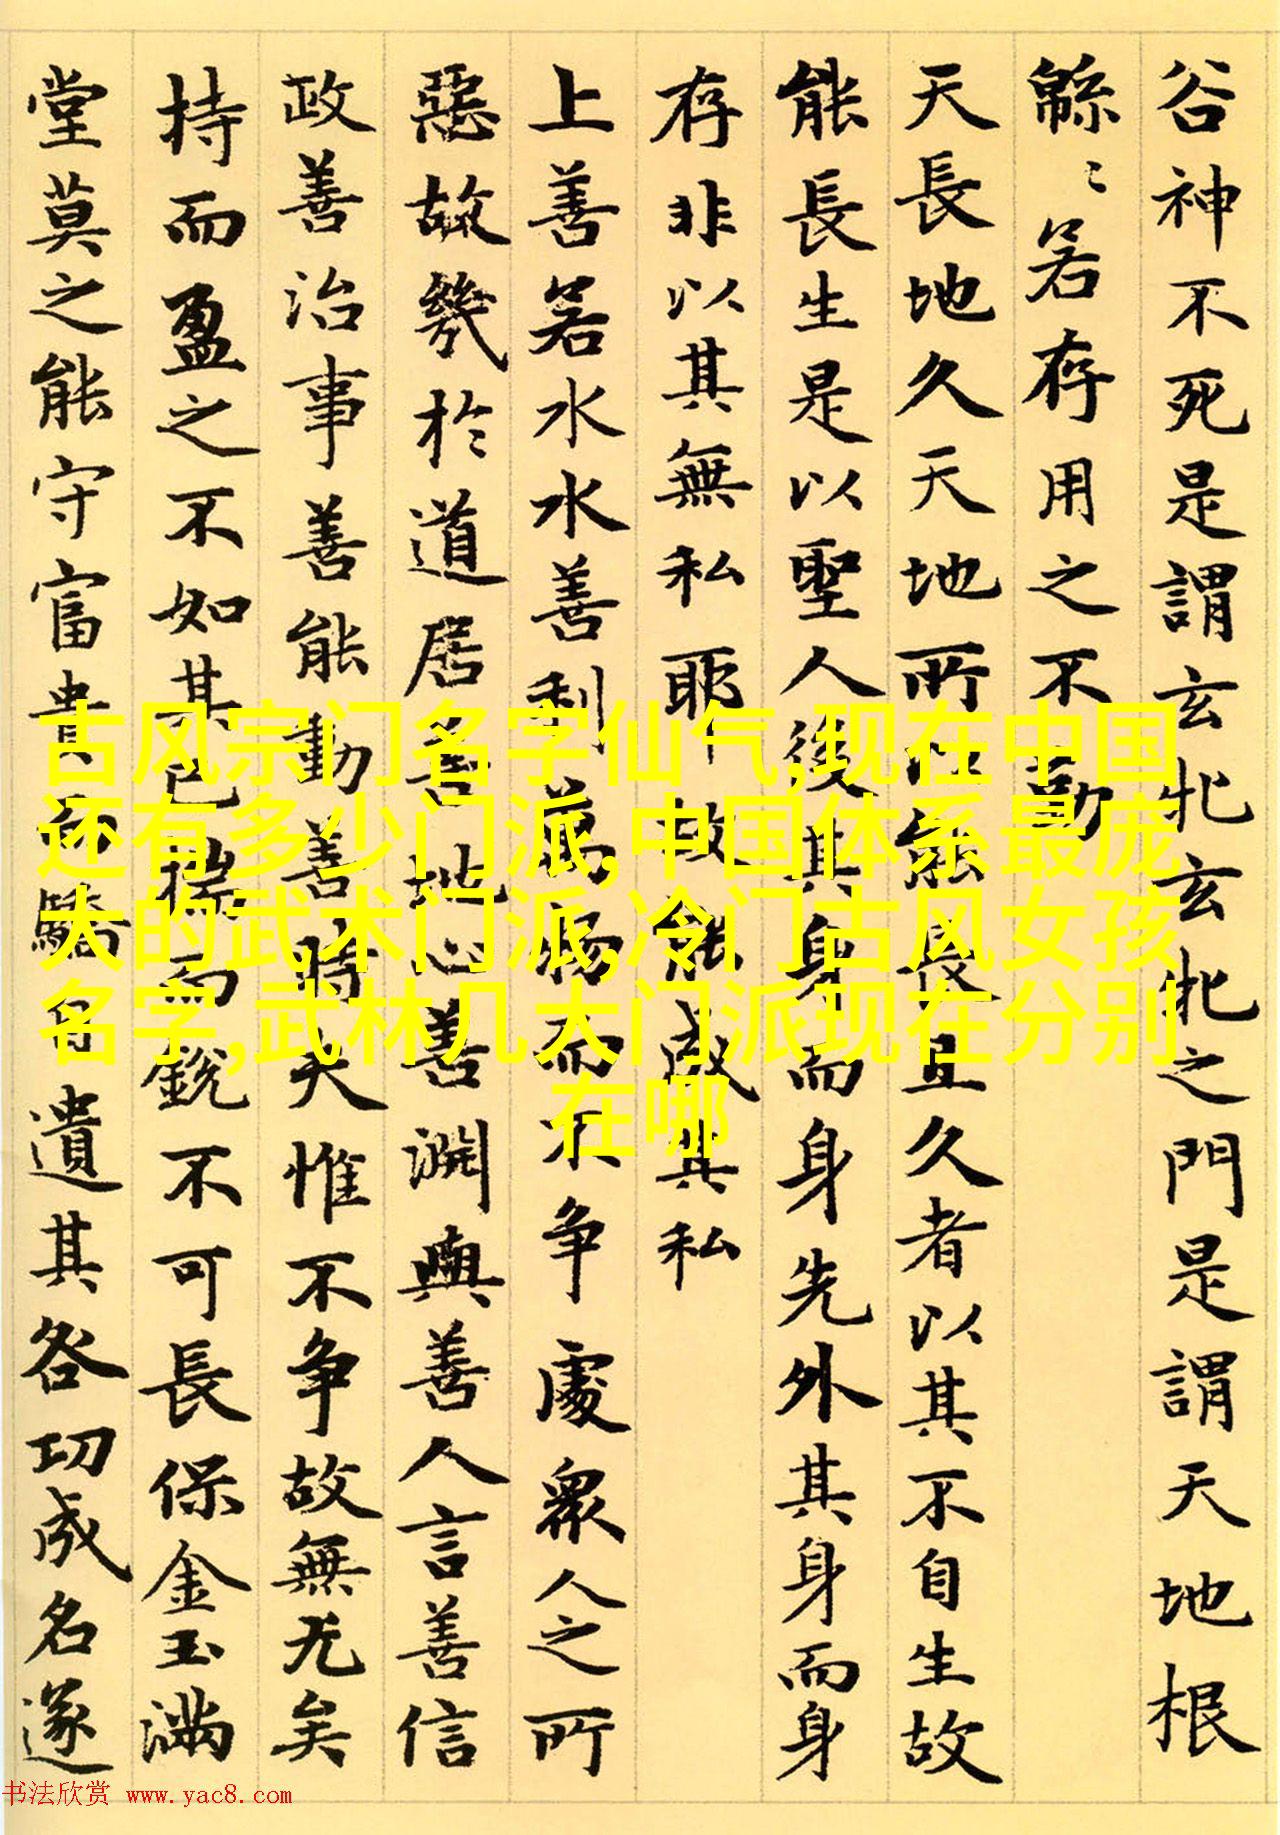 谷神不死是謂玄牝玄牝之門是謂天地根
緜〻若存用之不勤
天長地久天地所以能長且久者以其不自生故
能長生是以聖人後其身而身先外其身而身
存非以其無私耶故能成其私
上善若水水善利萬物而不争處衆人之所
惡故幾於道居善地心善淵與善人言善信
政善治事善能動善時夫惟不争故無尤矣
持而盈之不如其已揣而銳不可長保金玉滿
堂莫之能守富貴而驕自遺其咎功成名遂
古风宗门名字仙气,现在中国
还有多少门派,中国体系最庞
大的武术门派,冷门古风女孩
名字,武林几大门派现在分别
在哪
书法欣赏 www.yac8.com